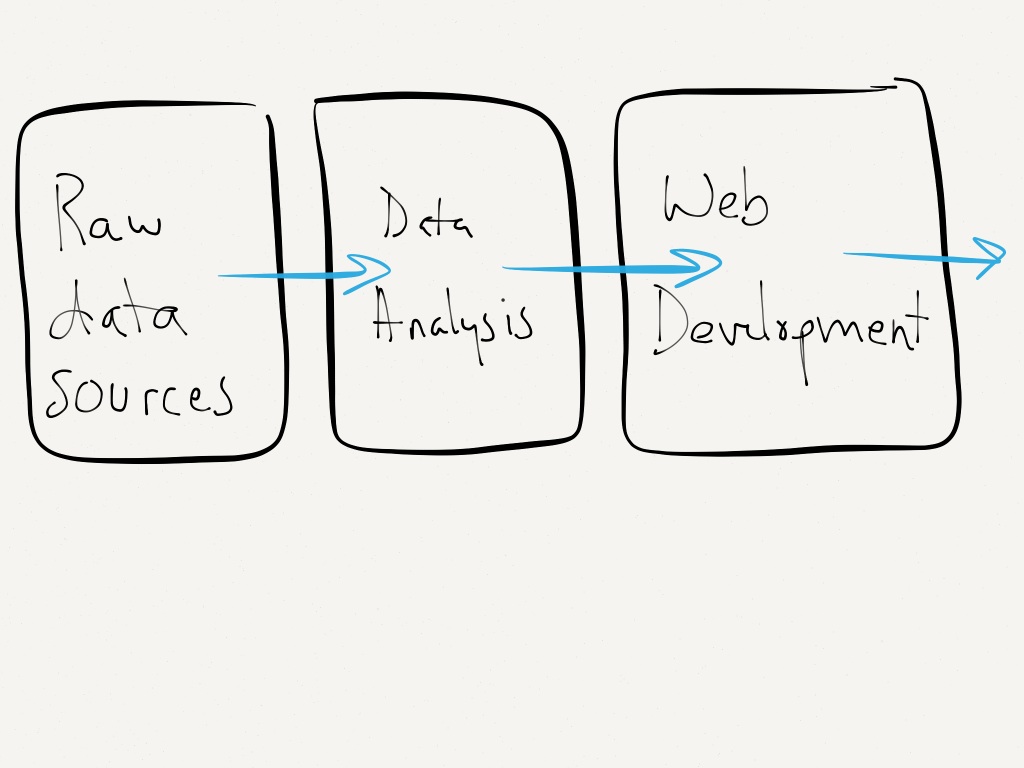 Raw
data
sources
Data
Analysis
Web
Development